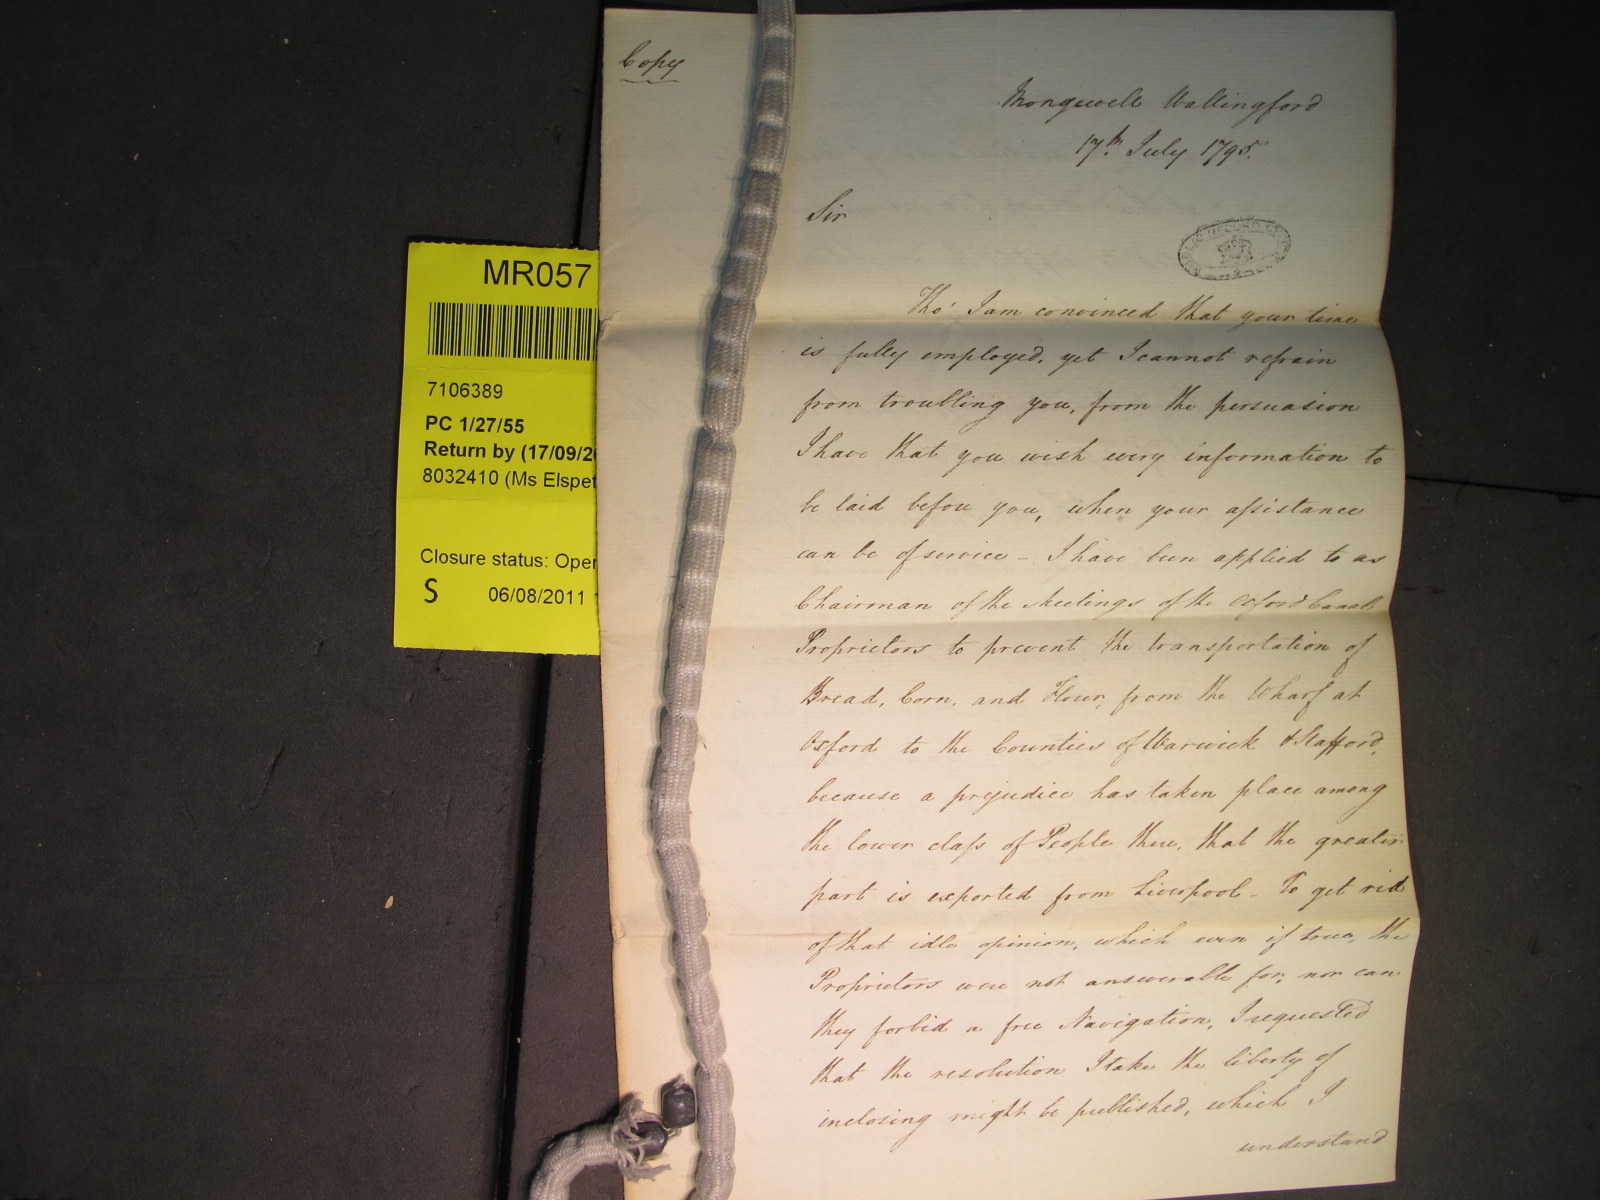 Copy
Mongewell Wallingford
17th July 1795.
Sir
PUBLIC RECORD OFFICE
Tho' I am convinced that your time
is fully employed, yet I cannot refrain
from troubling you, from the persuasion
I have that you wish every information to
be laid before you, when your assistance
can be of service - I have been applied to as
Chairman of the Meetings of the Oxford Canal
Proprietors to prevent the transportation of
Bread, Corn, and Flour, from the Wharf at
Oxford to the Counties of Warwick & Stafford,
because a prejudice has taken place among
the lower class of People there, that the greater
part is exported from Liverpool - To get rid
of that idle opinion, which even if true, the
Proprietors were not answerable for; nor can
they forbid a free Navigation, I requested
that the resolution I take the liberty of
inclosing might be published, which I
understand
MR057
7106389
PC 1/27/55
Return by (17/09/2
8032410 (Ms Elspet
Closure status: Open
S 06/08/2011